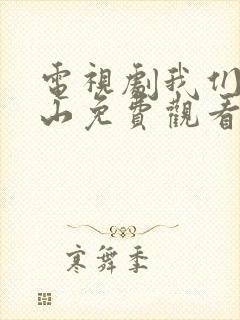 電視劇我们
山免費觀看
寒舞季